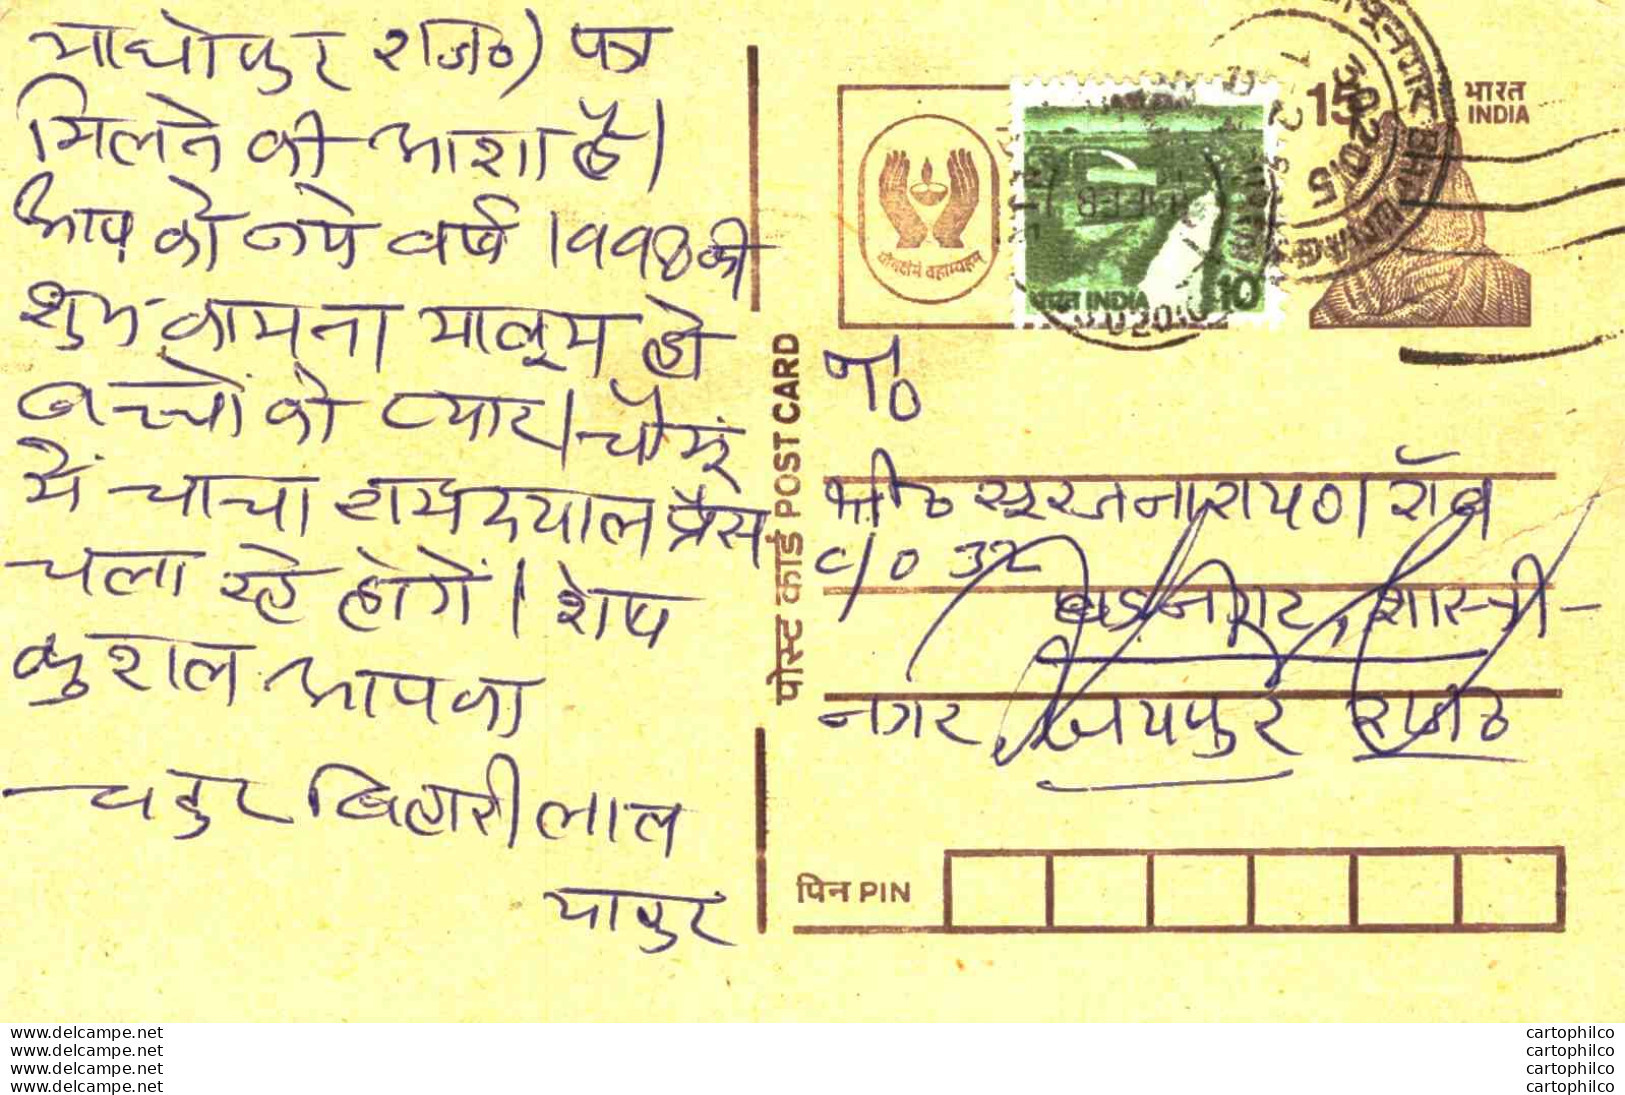 माधोपुर राज०) पत्र
मिलने की आशा है।
आप को नये वर्ष १९९४ की
शुभ कामना मालूम हो
बच्चों को प्यार। चौमूं
में चाचा रामदयाल प्रैस
चला रहे होगें। शेष
कुशल आपका
चतुर बिहारी लाल
माथुर
पोस्ट कार्ड POST CARD
योगक्षेमं वहाम्यहम्
भारत INDIA 10
15
भारत
INDIA
302015
श्री० सूरज नारायण
c/o 32
शास्त्री-
नगर जयपुर राज०
पिन PIN
www.delcampe.net
www.delcampe.net
www.delcampe.net
www.delcampe.net
cartophilco
cartophilco
cartophilco
cartophilco